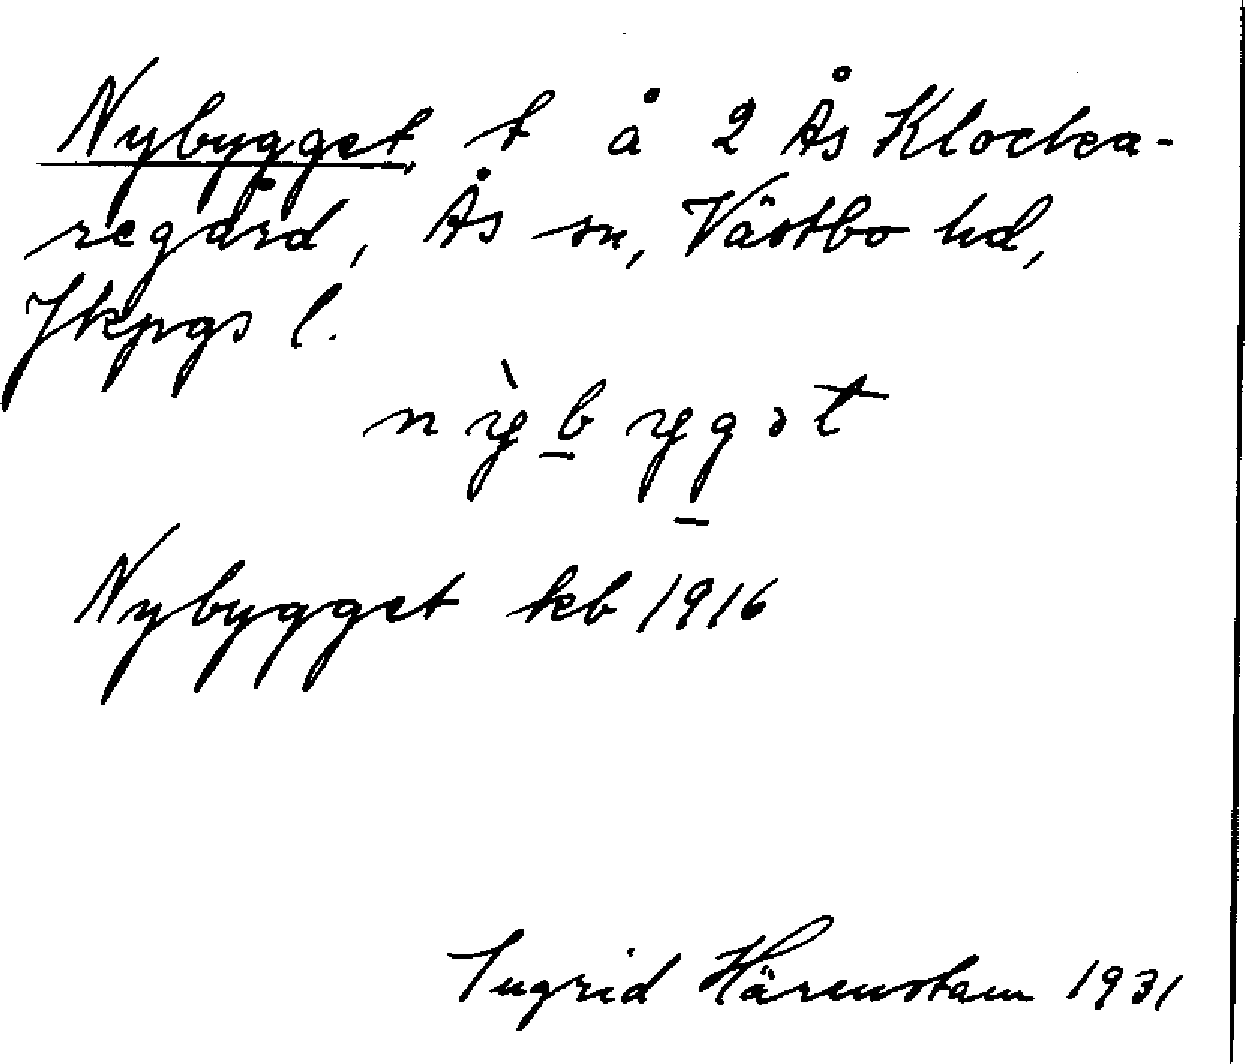 Nybygget t å 2 Ås Klocka-
regård, Ås sn, Västbo hd,
Jkpgs l.
nỳbygət
Nybygget kb 1916
Ingrid Härenstam 1931